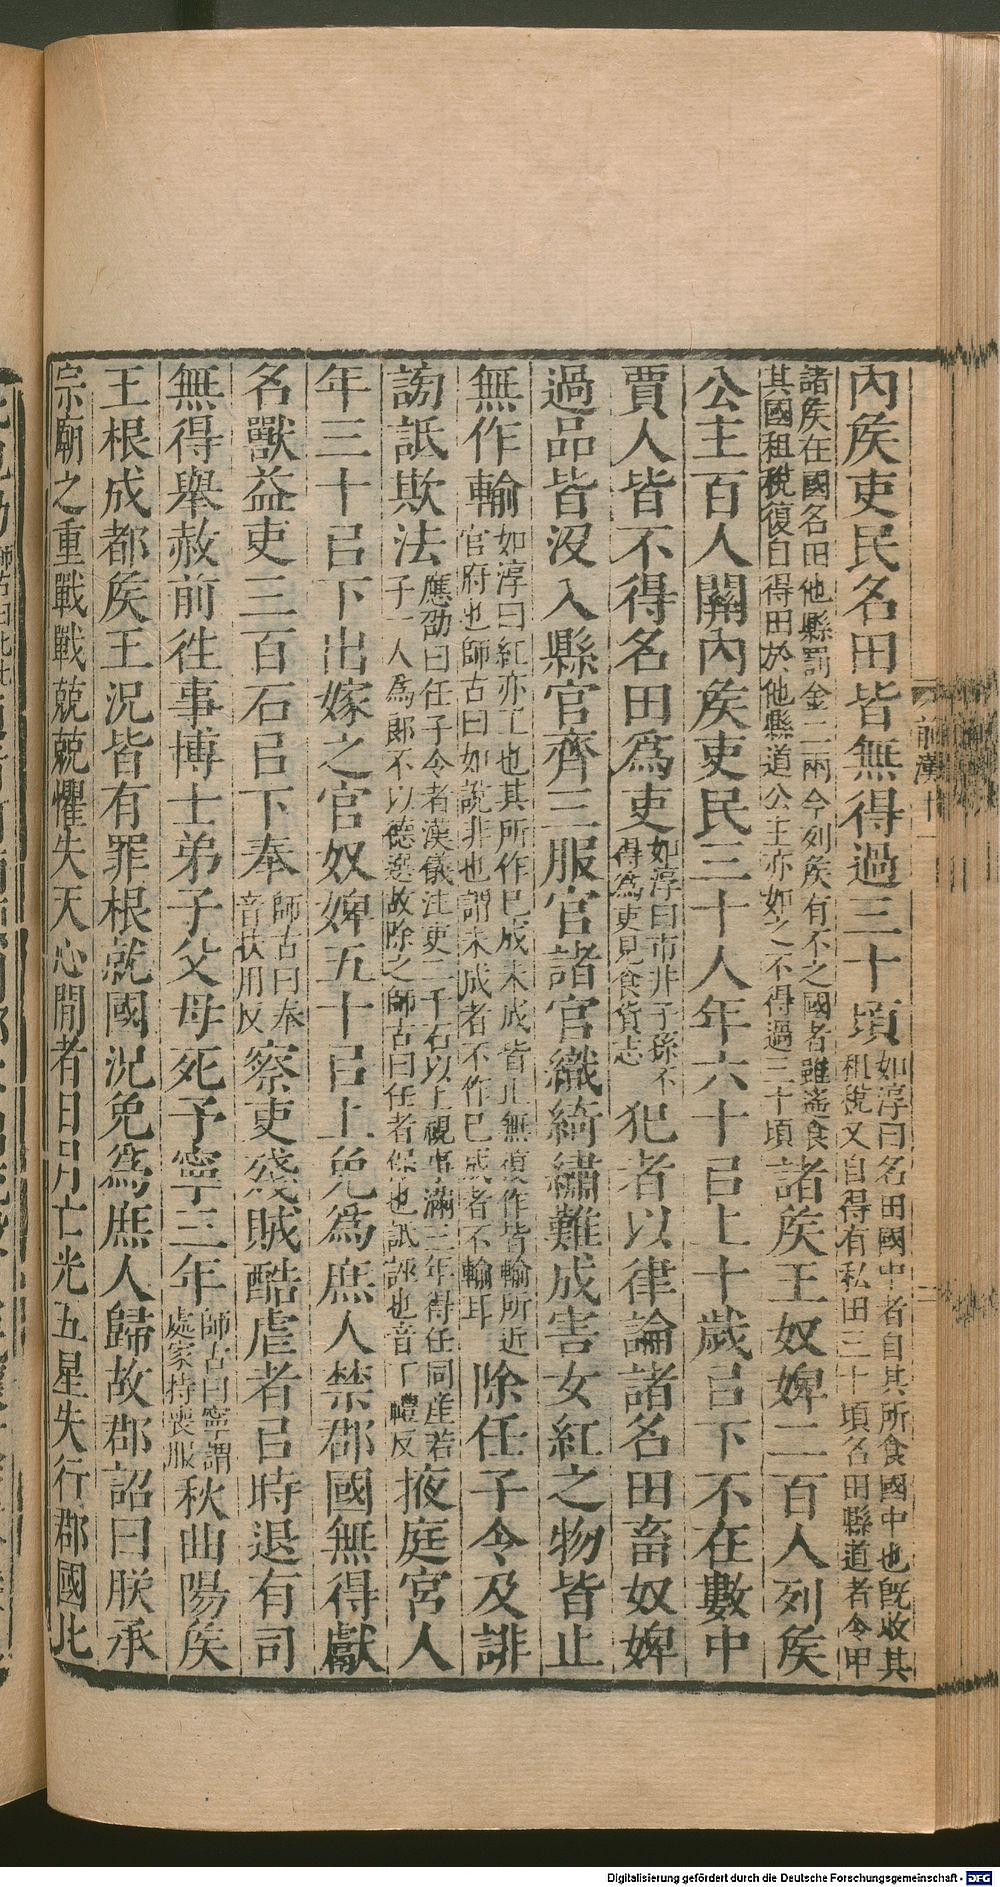 內矦吏民名田皆無得過三十頃如淳曰名田國中者自其所食國中也旣收其租稅又自得有私田三十頃名田縣道者令甲
諸矦在國名田他縣罰金二兩今列矦有不之國者雖遙食其國租稅復自得田於他縣道公主亦如之不得過三十頃諸矦王奴婢二百人列矦
公主百人關內矦吏民三十人年六十㠯上十歲㠯下不在數中
賈人皆不得名田爲吏如淳曰市井子孫不得爲吏見食貨志犯者以律論諸名田畜奴婢
過品皆沒入縣官齊三服官諸官織綺繡難成害女紅之物皆止
無作輸如淳曰紅亦工也其所作已成未成皆止無復作皆輸所近官府也師古曰如說非也謂未成者不作已成者不輸耳除任子令及誹
謗詆欺法應劭曰任子令者漢儀注吏二千石以上視事滿三年得任同產若子一人爲郞不以德選故除之師古曰任者保也詆誣也音丁禮反掖庭宮人
年三十㠯下出嫁之官奴婢五十㠯上免爲庶人禁郡國無得獻
名獸益吏三百石㠯下奉師古曰奉音扶用反察吏殘賊酷虐者㠯時退有司
無得舉赦前徃事博士弟子父母死予寧三年師古曰寧謂處家持喪服秋曲陽矦
王根成都矦王況皆有罪根就國況免爲庶人歸故郡詔曰朕承
宗廟之重戰戰兢兢懼失天心閒者日月亡光五星失行郡國比
前漢十一
Digitalisierung gefördert durch die Deutsche Forschungsgemeinschaft - DFG